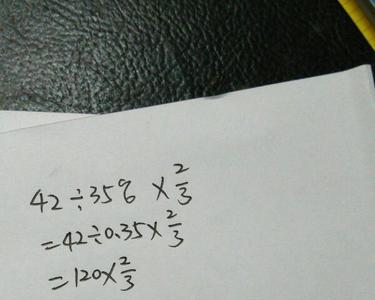 42÷35% ×2/3
=42÷0.35×2/3
=120×2/3